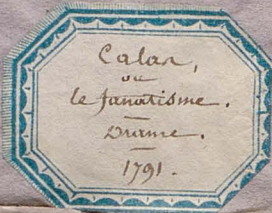 Calas,
ou
le fanatisme.
Drame.
1791.